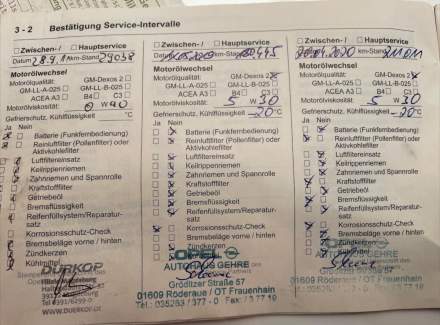 3 - 2 Bestätigung Service-Intervalle
Zwischen- / Hauptservice
Datum km-Stand 29038
Motorölwechsel
Motorölqualität: GM-Dexos 2
GM-LL-A-025 GM-LL-B-025
ACEA A3 B4 C3
Motorölviskosität: 0 W 40
Gefrierschutz, Kühlflüssigkeit °C
Ja Nein
Batterie (Funkfernbedienung)
Reinluftfilter (Pollenfilter) oder
Aktivkohlefilter
Luftfiltereinsatz
Keilrippenriemen
Zahnriemen und Spannrolle
Kraftstofffilter
Getriebeöl
Bremsflüssigkeit
Reifenfüllsystem/Reparatur-
satz
Korrosionsschutz-Check
Bremsbeläge vorne / hinten
Zündkerzen
Kühlmittel
DÜRKOP
WWW.DUERKOP.DE
Zwischen- / Hauptservice
Datum km-Stand
Motorölwechsel
Motorölqualität: GM-Dexos 2
GM-LL-A-025 GM-LL-B-025
ACEA A3 B4 C3
Motorölviskosität: 5 W 30
Gefrierschutz, Kühlflüssigkeit -20°C
Ja Nein
Batterie (Funkfernbedienung)
Reinluftfilter (Pollenfilter) oder
Aktivkohlefilter
Luftfiltereinsatz
Keilrippenriemen
Zahnriemen und Spannrolle
Kraftstofffilter
Getriebeöl
Bremsflüssigkeit
Reifenfüllsystem/Reparatur-
satz
Korrosionsschutz-Check
Bremsbeläge vorne / hinten
Zündkerzen
OPEL
AUTOHAUS GEHRE
Gröditzer Straße 57
01609 Röderaue / OT Frauenhain
Zwischen- / Hauptservice
km-Stand
Motorölwechsel
Motorölqualität: GM-Dexos 2
GM-LL-A-025 GM-LL-B-025
ACEA A3 B4 C3
Motorölviskosität: 5 W 30
Gefrierschutz, Kühlflüssigkeit -20°C
Ja Nein
Batterie (Funkfernbedienung)
Reinluftfilter (Pollenfilter) oder
Aktivkohlefilter
Luftfiltereinsatz
Keilrippenriemen
Zahnriemen und Spannrolle
Kraftstofffilter
Getriebeöl
Bremsflüssigkeit
Reifenfüllsystem/Reparatur-
satz
Korrosionsschutz-Check
Bremsbeläge vorne / hinten
Zündkerzen
AUTOHAUS GEHRE
Gröditzer Straße 57
01609 Röderaue / OT Frauenhain